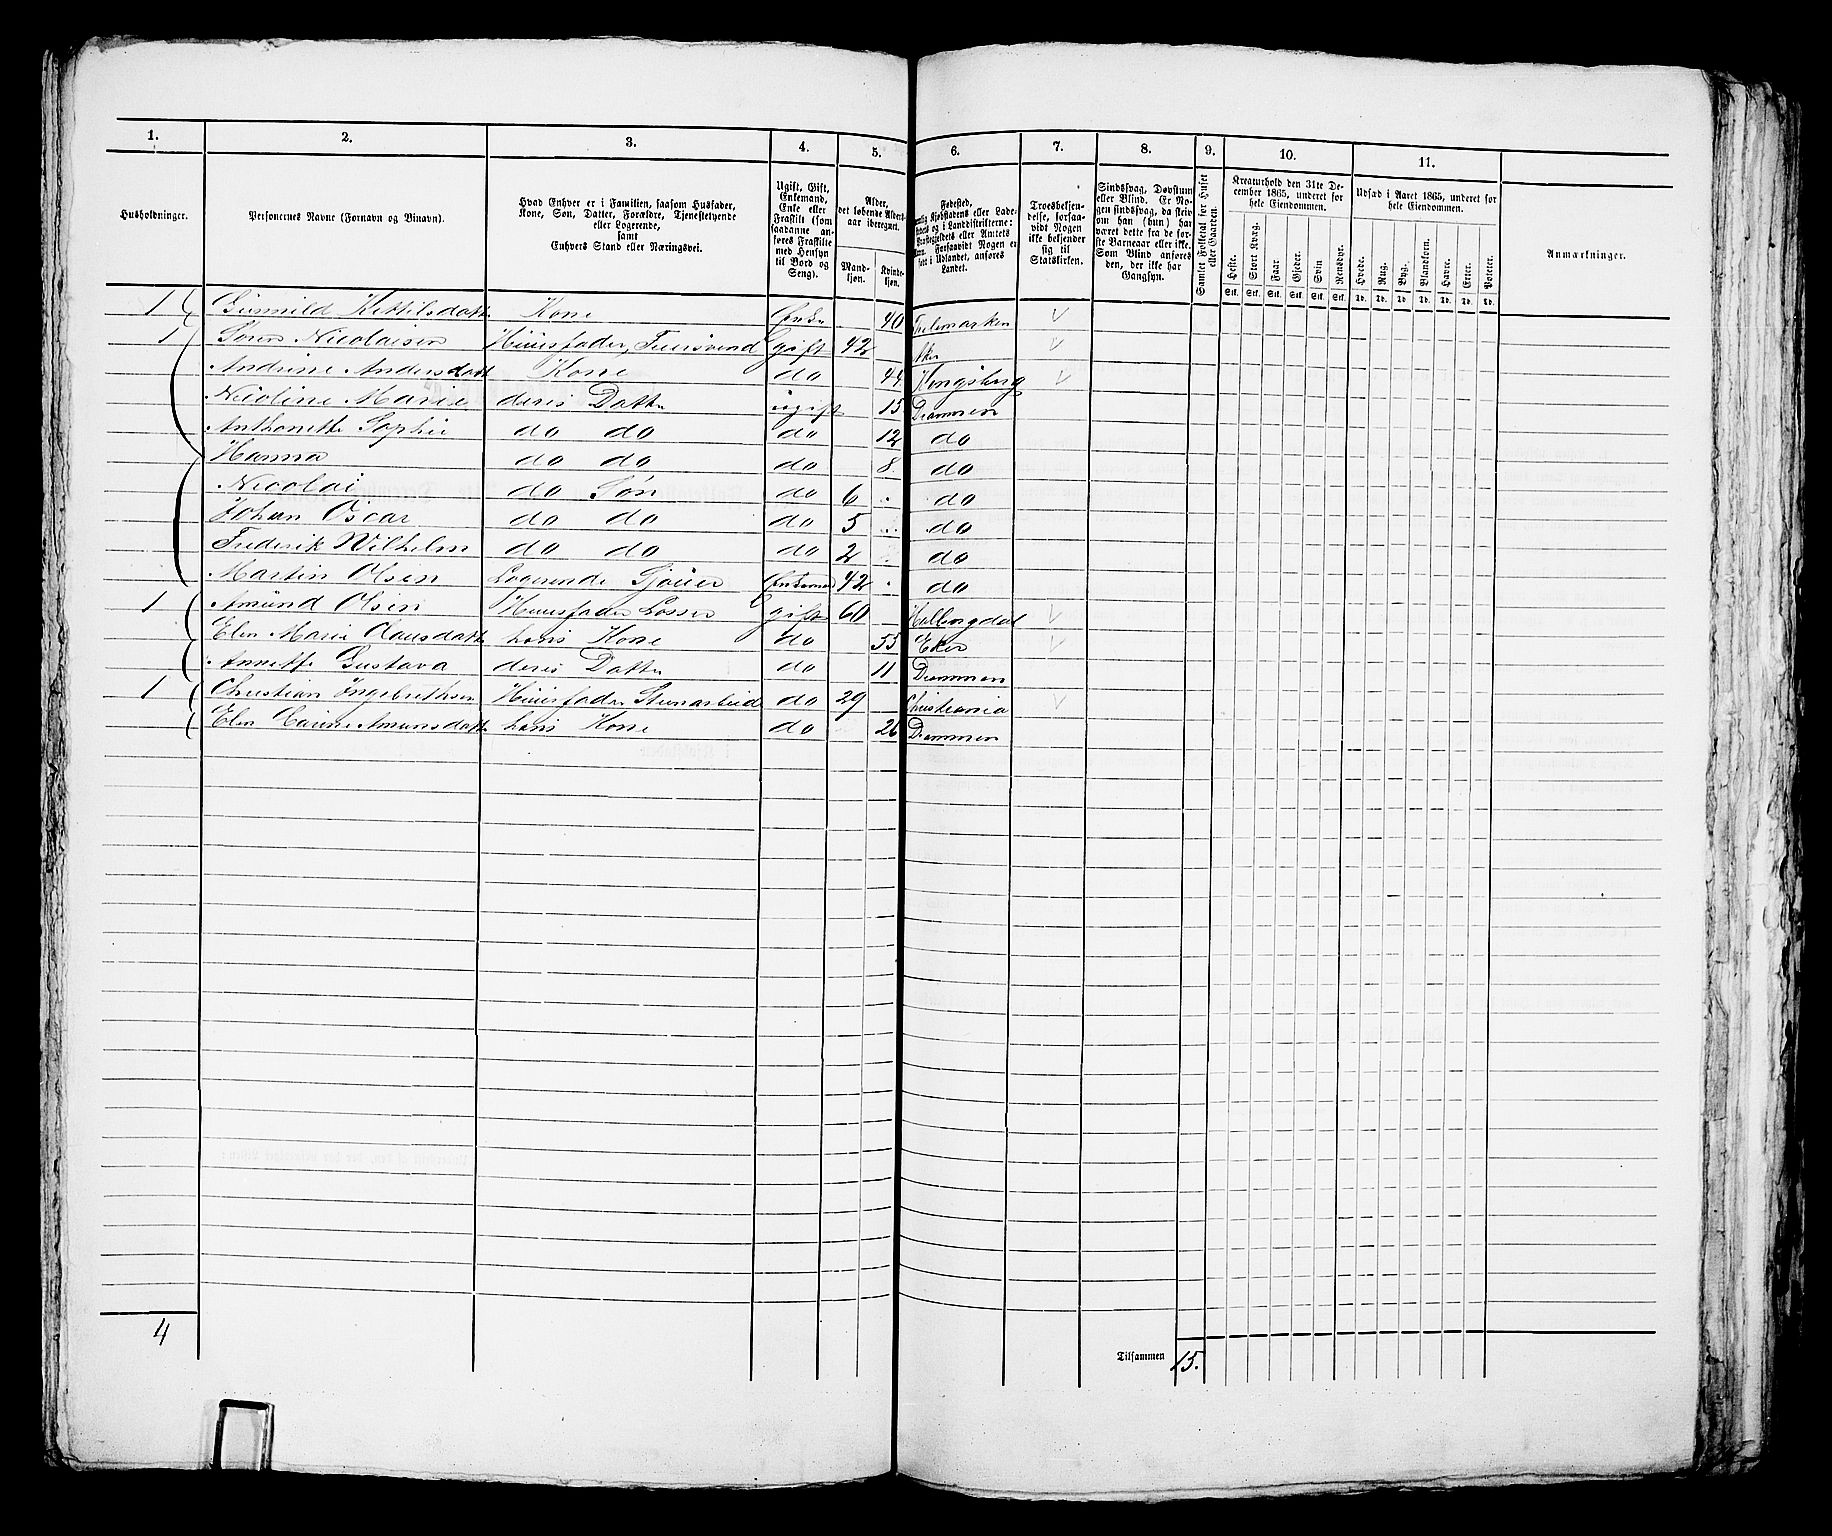 1. 2. 3. 4. 5. 6. 7. 8. 9. 10. 11.
Husholdninger.
Personernes Navne (Fornavn og Tilnavn).
Hvad Enhver er i Familien, saasom Husfader,
Kone, Søn, Datter, Forældre, Tjenestetyende
eller Logerende,
samt
Enhvers Stand eller Næringsvei.
Ugift, Gift,
Enkemand,
Enke eller
Fraskilt (som
saadanne an-
føres Fraskilte
med Hensyn
til Bord og
Seng).
Alder,
det løbende Alders-
aar iberegnet.
Mand-
kjøn.
Kvinde-
kjøn.
Fødested,
Kjøbstadens eller Lade-
og i Landdistrikterne:
Præstegjeldets eller Amtets
Forsaavidt Nogen er
født i Udlandet, anføres
Landet.
Troesbekjen-
delse, forsaa-
vidt Nogen
ikke bekjender
sig til
Statskirken.
Sindssvag, Døvstum
eller Blind. Er No-
gen sindssvag, da skriv
om han (hun) har
været dette fra de før-
ste Barneaar eller ikke.
Som Blind anføres
den, der ikke har
Gangsyn.
Samlet Folketal for Huset
eller Gaarden.
Kreaturhold den 31te De-
cember 1865, underet for
hele Eiendommen.
Heste. Stort Kvæg. Faar. Gjeder. Svin. Rensdyr.
Stk. Stk. Stk. Stk. Stk. Stk.
Udsæd i Aaret 1865, underet for
hele Eiendommen.
Hvede. Rug. Byg. Blandkorn. Havre. Erter. Poteter.
Td. Td. Td. Td. Td. Td. Td.
Anmærkninger.
1 Gunnild Kettilsdatt Kone Enke 40 Thelemarken
1 Søren Nicolaisen Huusfader, gift 42 Aker
Andrine Andersdatt Kone do 44 Kongsberg
Nicoline Marie deres Datter ugift 15 Drammen
Anthonette Sophie do do do 12 do
Hanna do do do 8 do
Nicolai do Søn do 6 do
Johan Oscar do do do 5 do
Frederik Wilhelm do do do 2 do
Martin Olsen Logerende Sjouer Enkemand 42 do
1 Amund Olsen Huusfader Losser gift 60 Hallingdal
Elen Marie Clausdatt hans Kone do 55 Eker
Annette Gustava deres Datter do 11 Drammen
1 Christian Ingebrethsen Huusfader Stenarbeid do 29 Christiania
Elen Carine Amunsdatt hans Kone do 26 Drammen
4
Tilsammen 15.